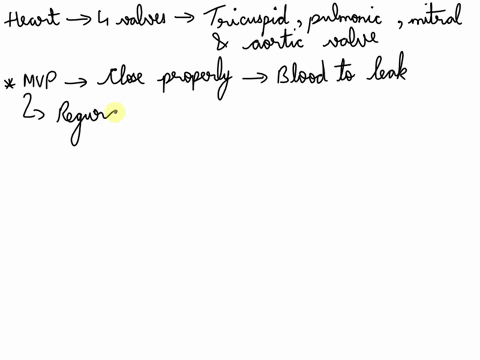 Heart → 4 valves → Tricuspid, pulmonic, mitral
& aortic valve
* MVP → Close properly → Blood to leak
↳ Regur